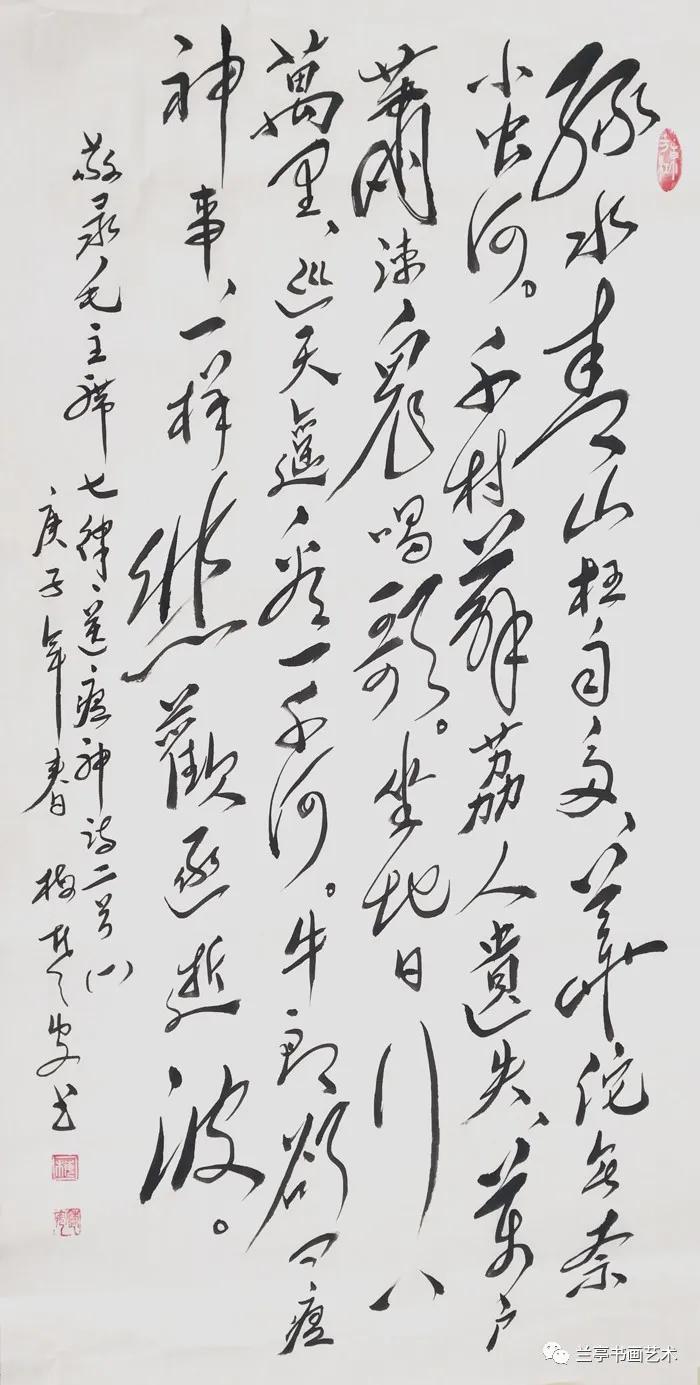 绿水青山枉自多、華佗无奈
小虫何。千村薜荔人遺失、萬户
蕭疏、鬼唱歌。坐地日行八
萬里、巡天遥、看一千河。牛郎欲问瘟
神事、一样悲歡逐逝波。
敬录毛主席七律、送瘟神诗二首(一)
庚子年春 梅 书
兰亭书画艺术